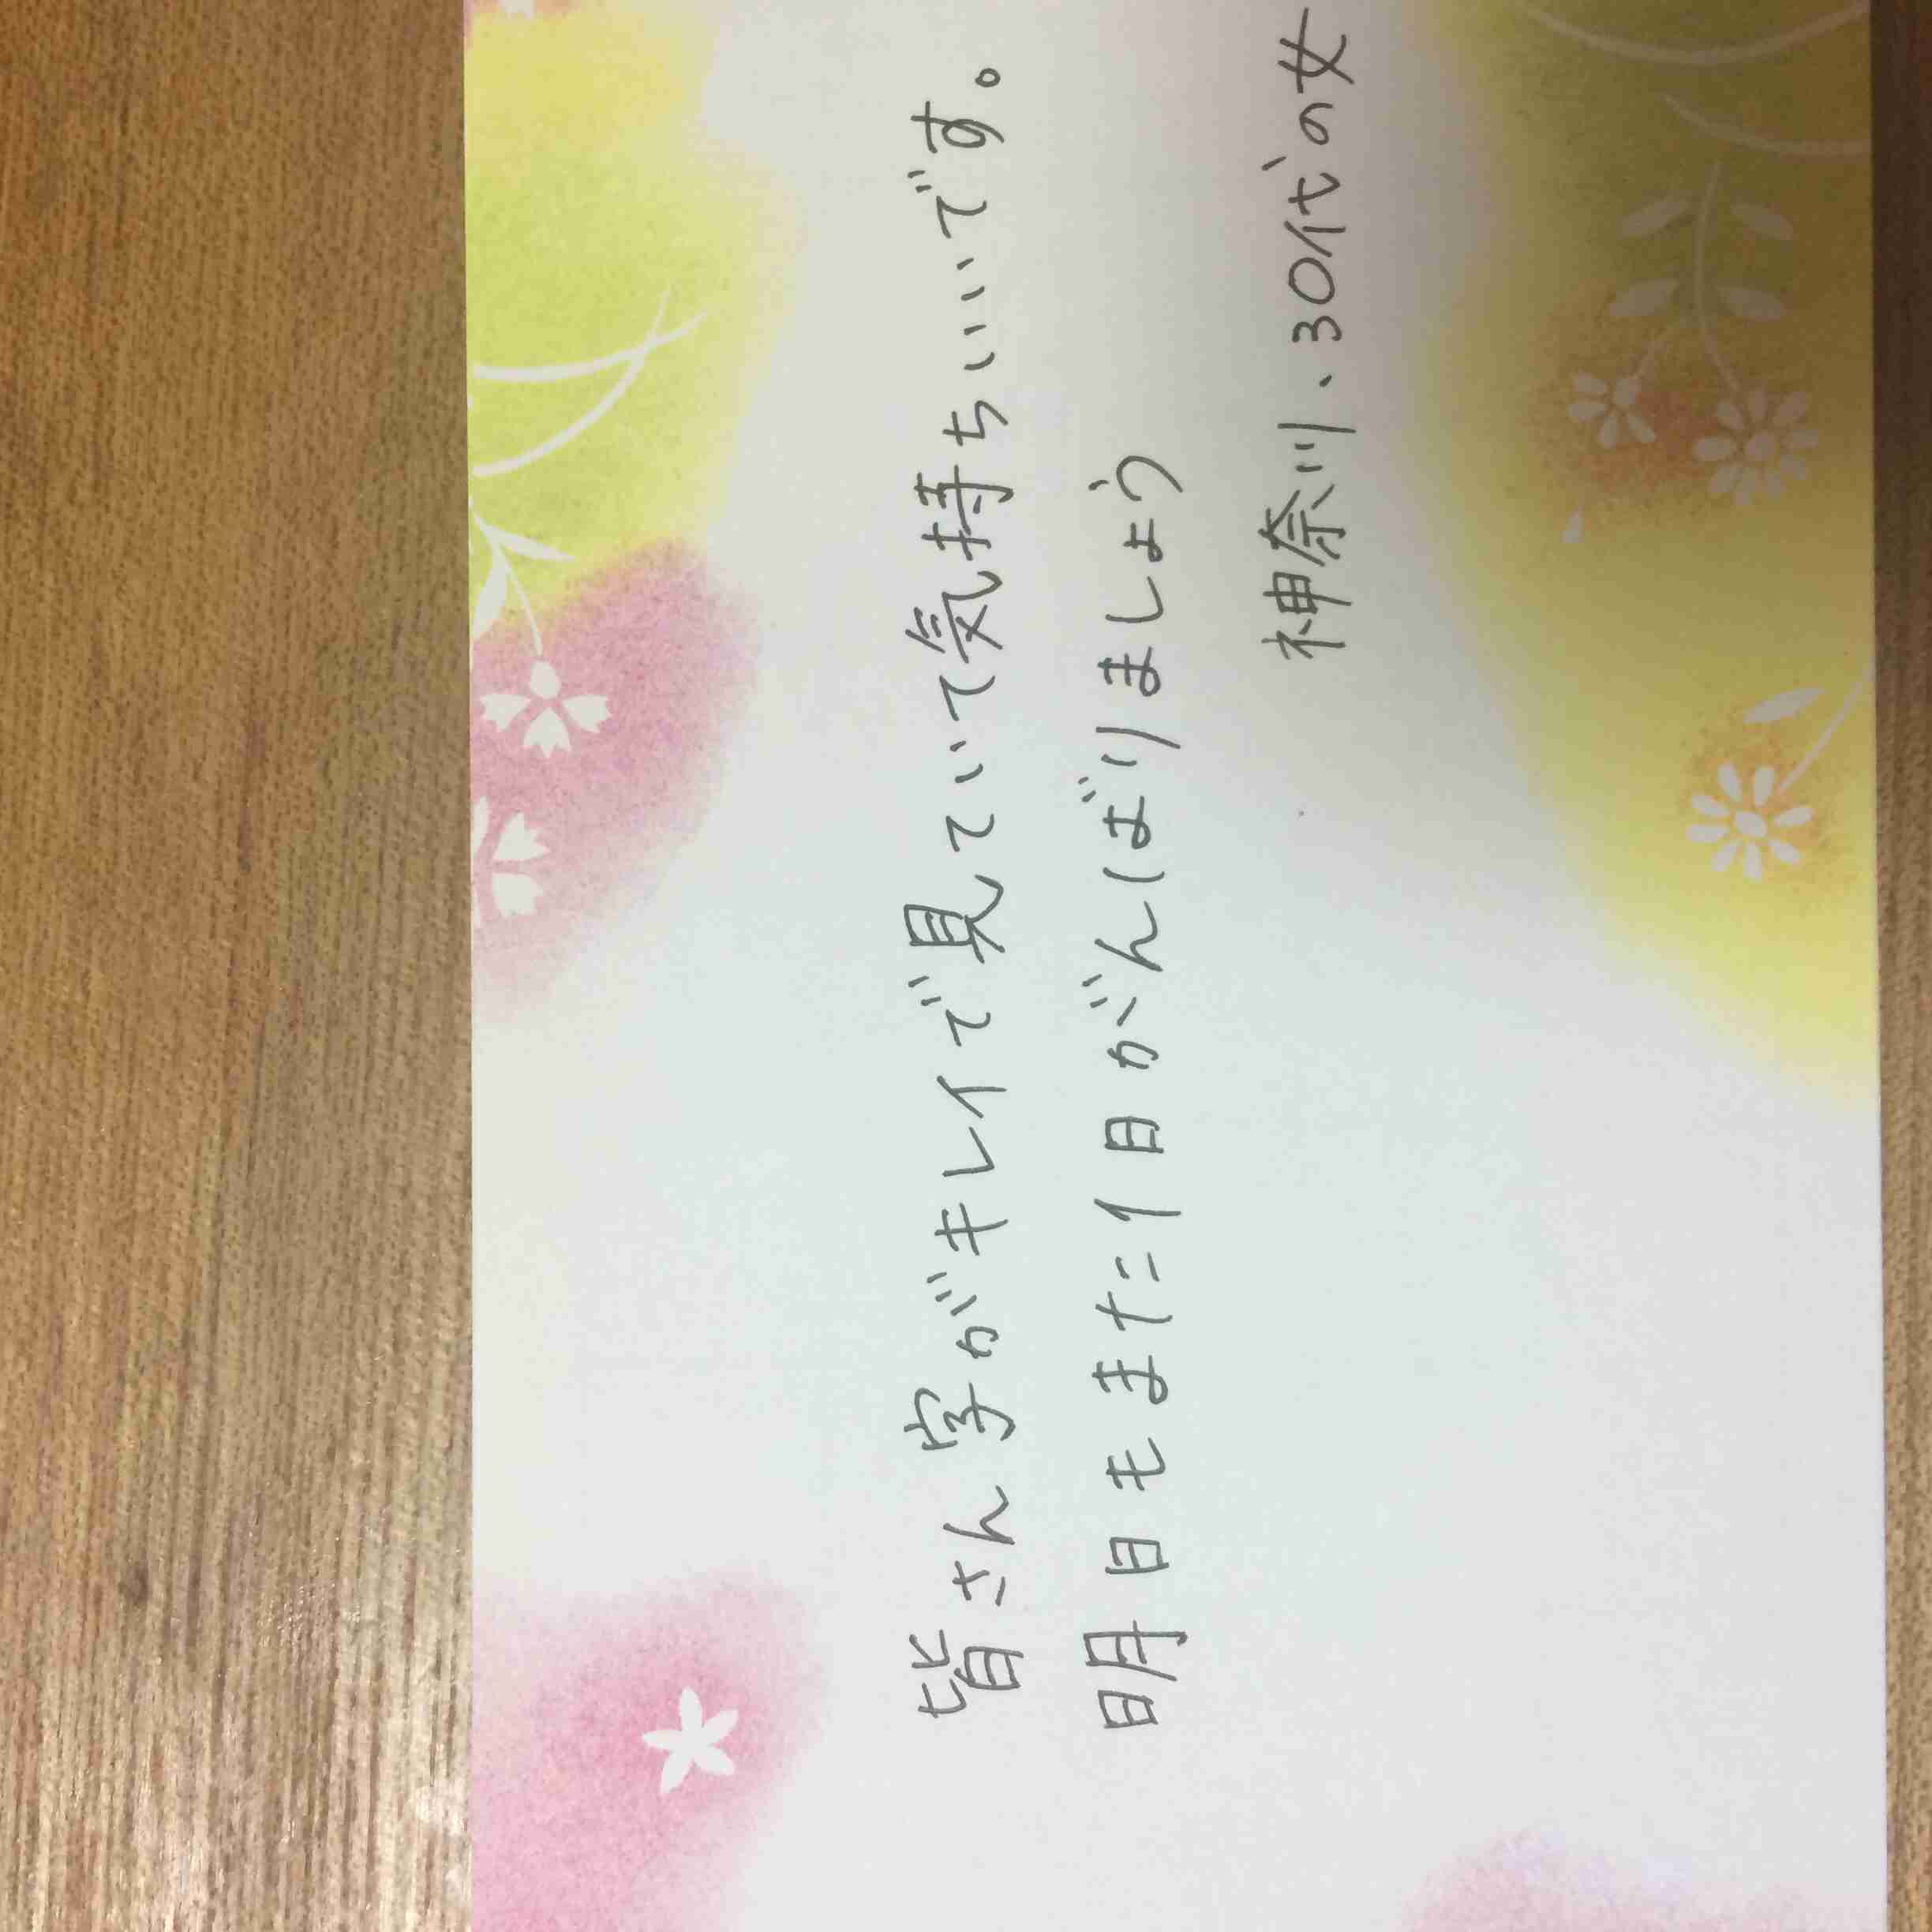 皆さん字がキレイで見ていて気持ちいいです。
明日もまた1日がんばりましょう
神奈川、30代の女